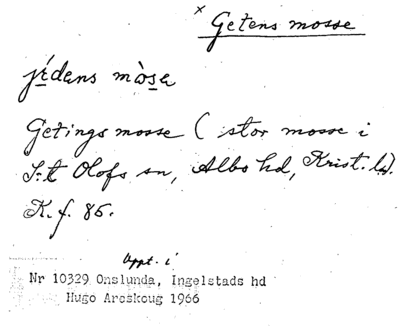 x Getens mosse
jídens mòsa
Getingsmosse (stor mosse i
S:t Olofs sn, Albo hd, Krist. l.).
K. f. 86.
Uppt. i
Nr 10329 Onslunda, Ingelstads hd
Hugo Areskoug 1966